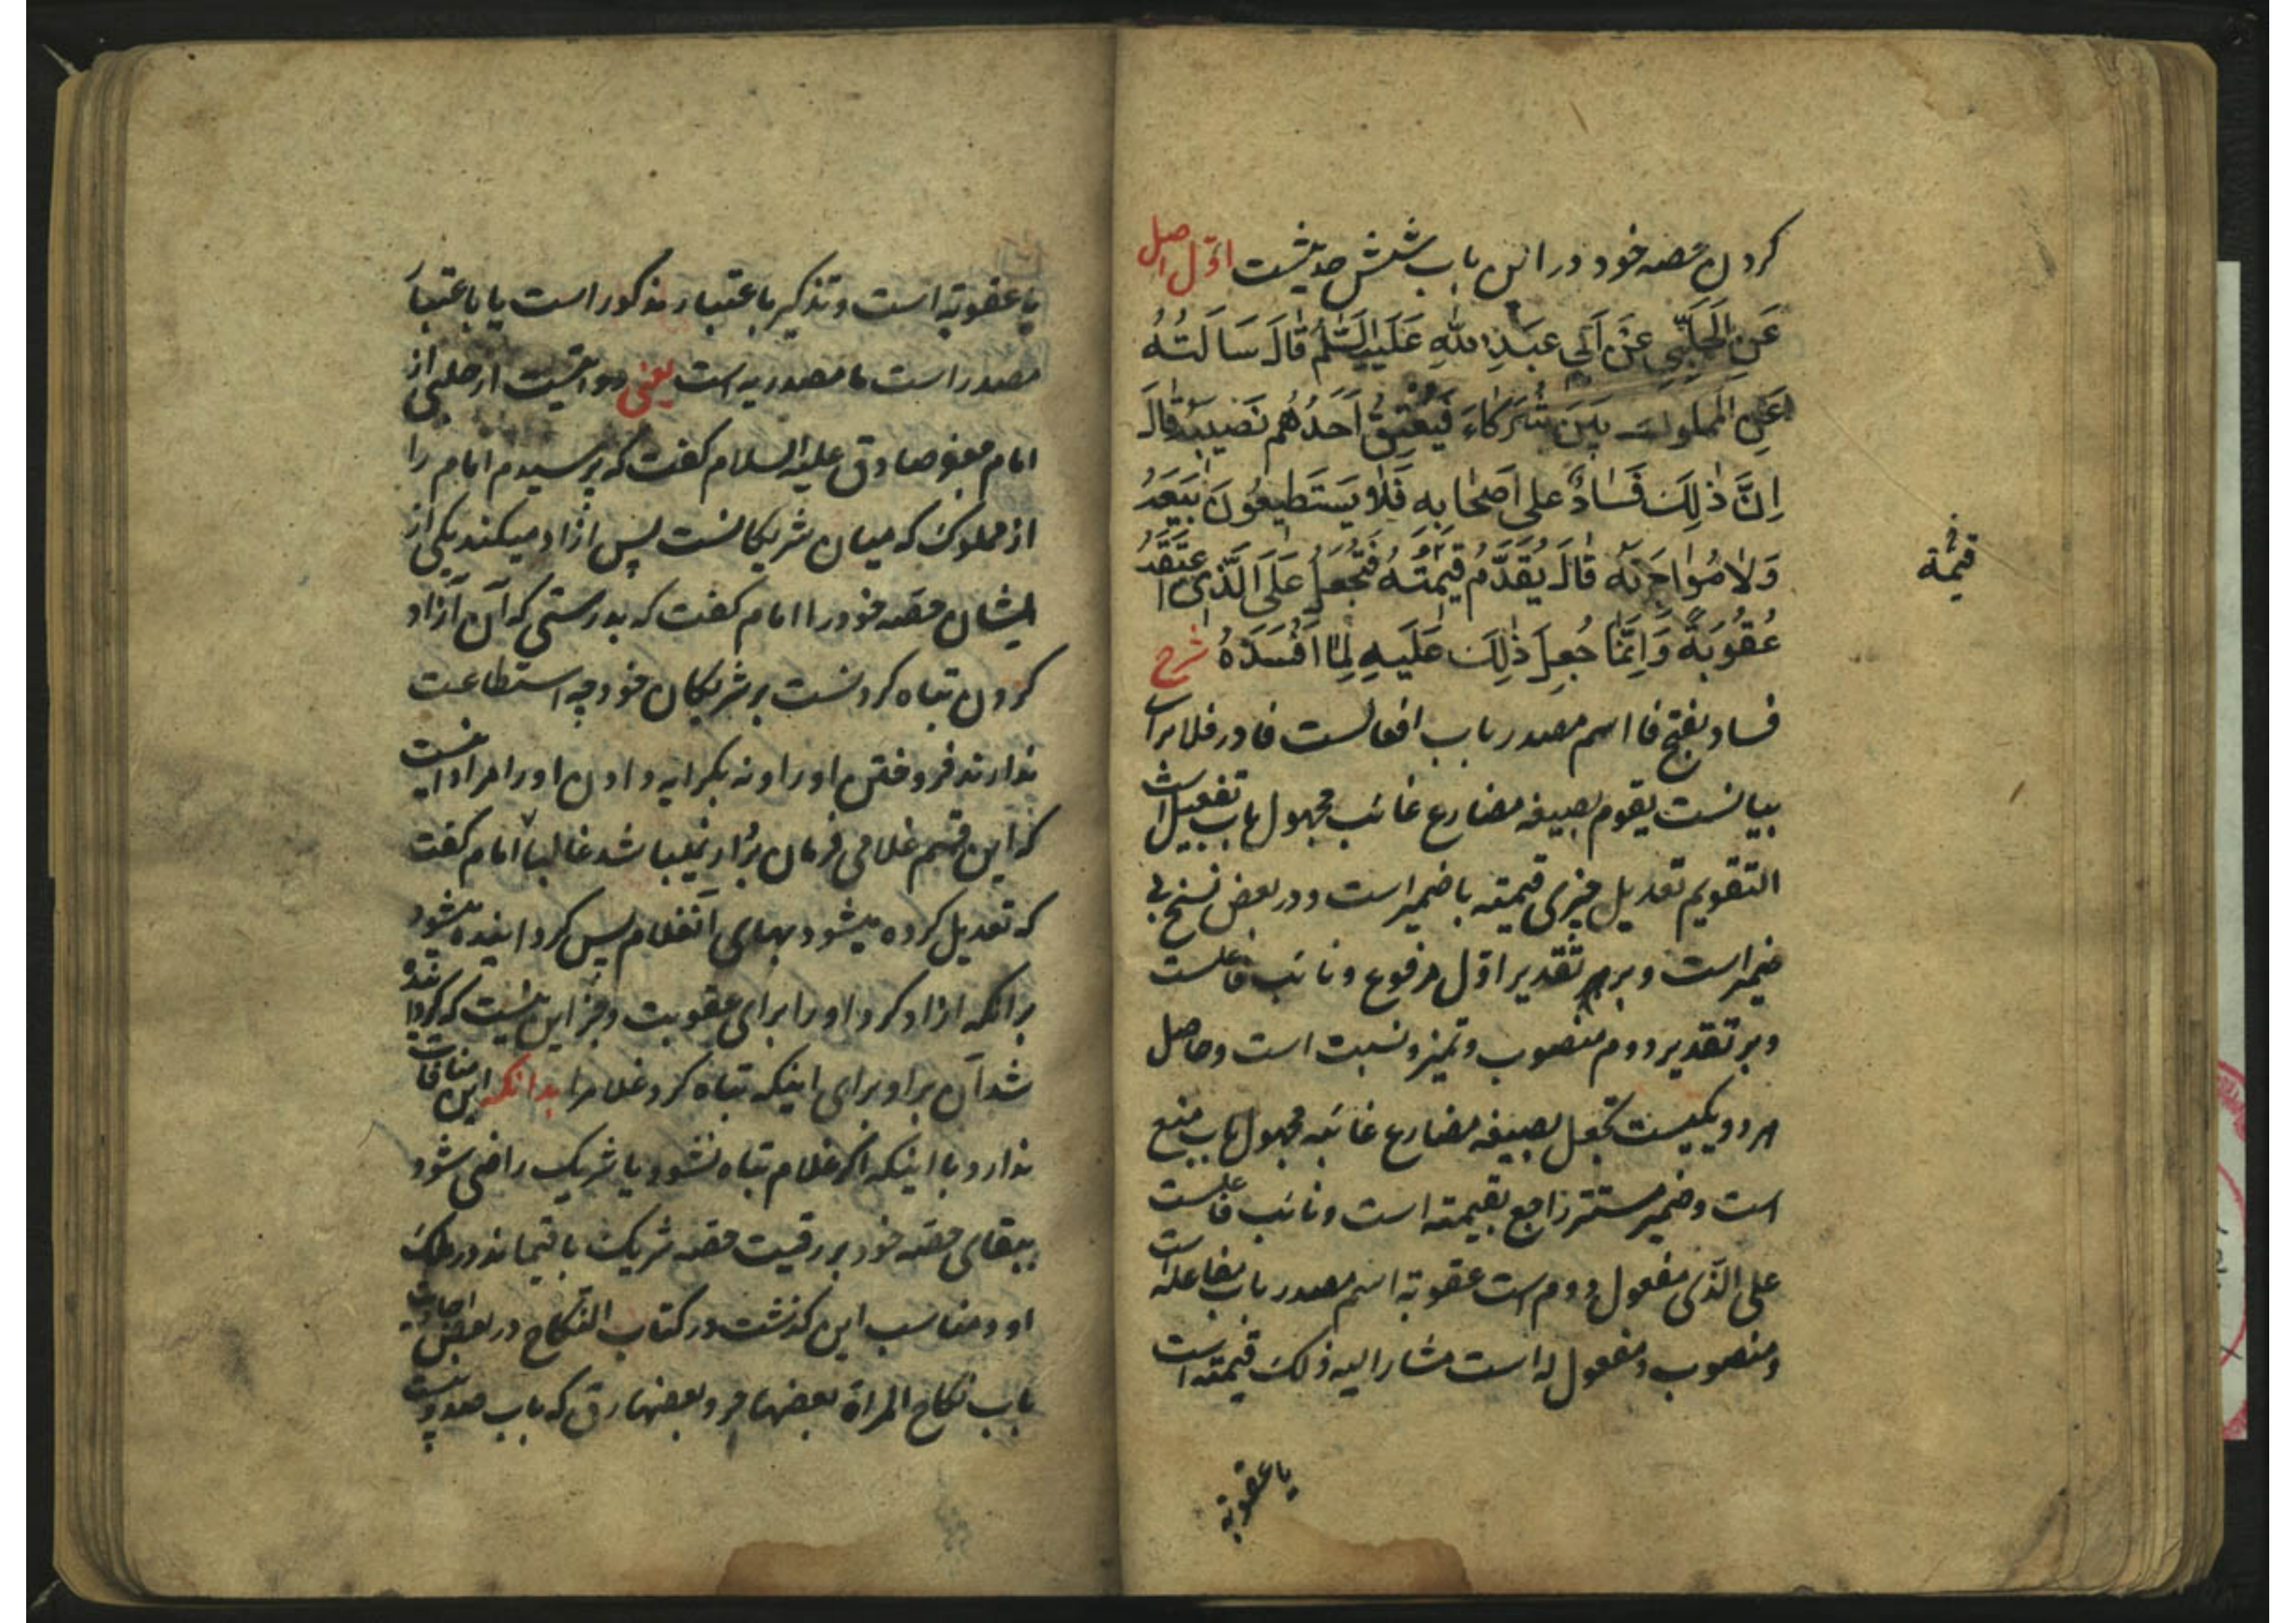 کردن حصه خود در این باب شش حدیثست اوّل اصل
عَنِ الْحَلَبِيِّ عَنْ اَبِي عَبْدِ اللّٰهِ عَلَيْهِ السَّلٰمُ قٰالَ سَاَلْتُهُ
عَنِ الْمَمْلُوكِ بَيْنَ شُرَكٰاءَ فَيُعْتِقُ اَحَدُهُمْ نَصِيبَهُ قٰالَ
اِنَّ ذٰلِكَ فَسٰادٌ عَلىٰ اَصْحٰابِهِ فَلٰا يَسْتَطِيعُونَ بَيْعَهُ
وَلٰا مُؤٰاجَرَتَهُ قٰالَ يُقَوَّمُ قِيمَتُهُ فَتُجْعَلُ عَلَى الَّذِي اعْتَقَهُ
قیمة
عُقُوبَةً وَاِنَّمٰا جُعِلَ ذٰلِكَ عَلَيْهِ لِمٰا اَفْسَدَهُ شرح
فساد بفتح فا اسم مصدر باب افعالست فا در فلا برای
بیانست یقوم بصیغه مضارع غائب مجهول باب تفعیل است
التقویم تعدیل چیزی قیمته با ضمیر است و در بعض نسخ بی
ضمیر است و بر تقدیر اوّل مرفوع و نائب فاعلست
و بر تقدیر دوم منصوب و تمیز و نسبت است و حاصل
هر دو یکیست تجعل بصیغه مضارع غائبه مجهول باب منع
است و ضمیر مستتر راجع بقیمته است و نائب فاعلست
علی الّذی مفعول دوم است عقوبة اسم مصدر باب مفاعله است
و منصوب و مفعول له است مشار الیه ذلک قیمته است
یا عقوبة
یا عقوبة است و تذکیر باعتبار مذکور است یا باعتبار
مصدر است ما مصدریه است یعنی روایتست از حلبی از
امام جعفر صادق علیه السلام گفت که پرسیدم امام را
از مملوک که میان شریکانست پس آزاد میکند یکی از
ایشان حصه خود را امام گفت که بدرستی که آن آزاد
کردن تباه کردنست بر شریکان خود چه استطاعت
ندارند فروختن او را و نه بکرایه دادن او را مراد اینست
که این قسم غلامی فرمان بردار نمیباشد غالبا امام گفت
که تعدیل کرده میشود بهای آنغلام پس گردانیده میشود
بر انکه ازاد کرد او را برای عقوبت و جز این نیست که گردانیده
شد آن بر او برای اینکه تباه کرد غلام را بدانکه این منافات
ندارد با اینکه اگر غلام تباه نشود یا شریک راضی شود
ببقای حصه خود بر رقیت حصه شریک باقیماند در ملک
او و مناسب این گذشت در کتاب النکاح در بعض احادیث
باب نکاح المراة بعضها حر و بعضها رق که باب صد و بیست